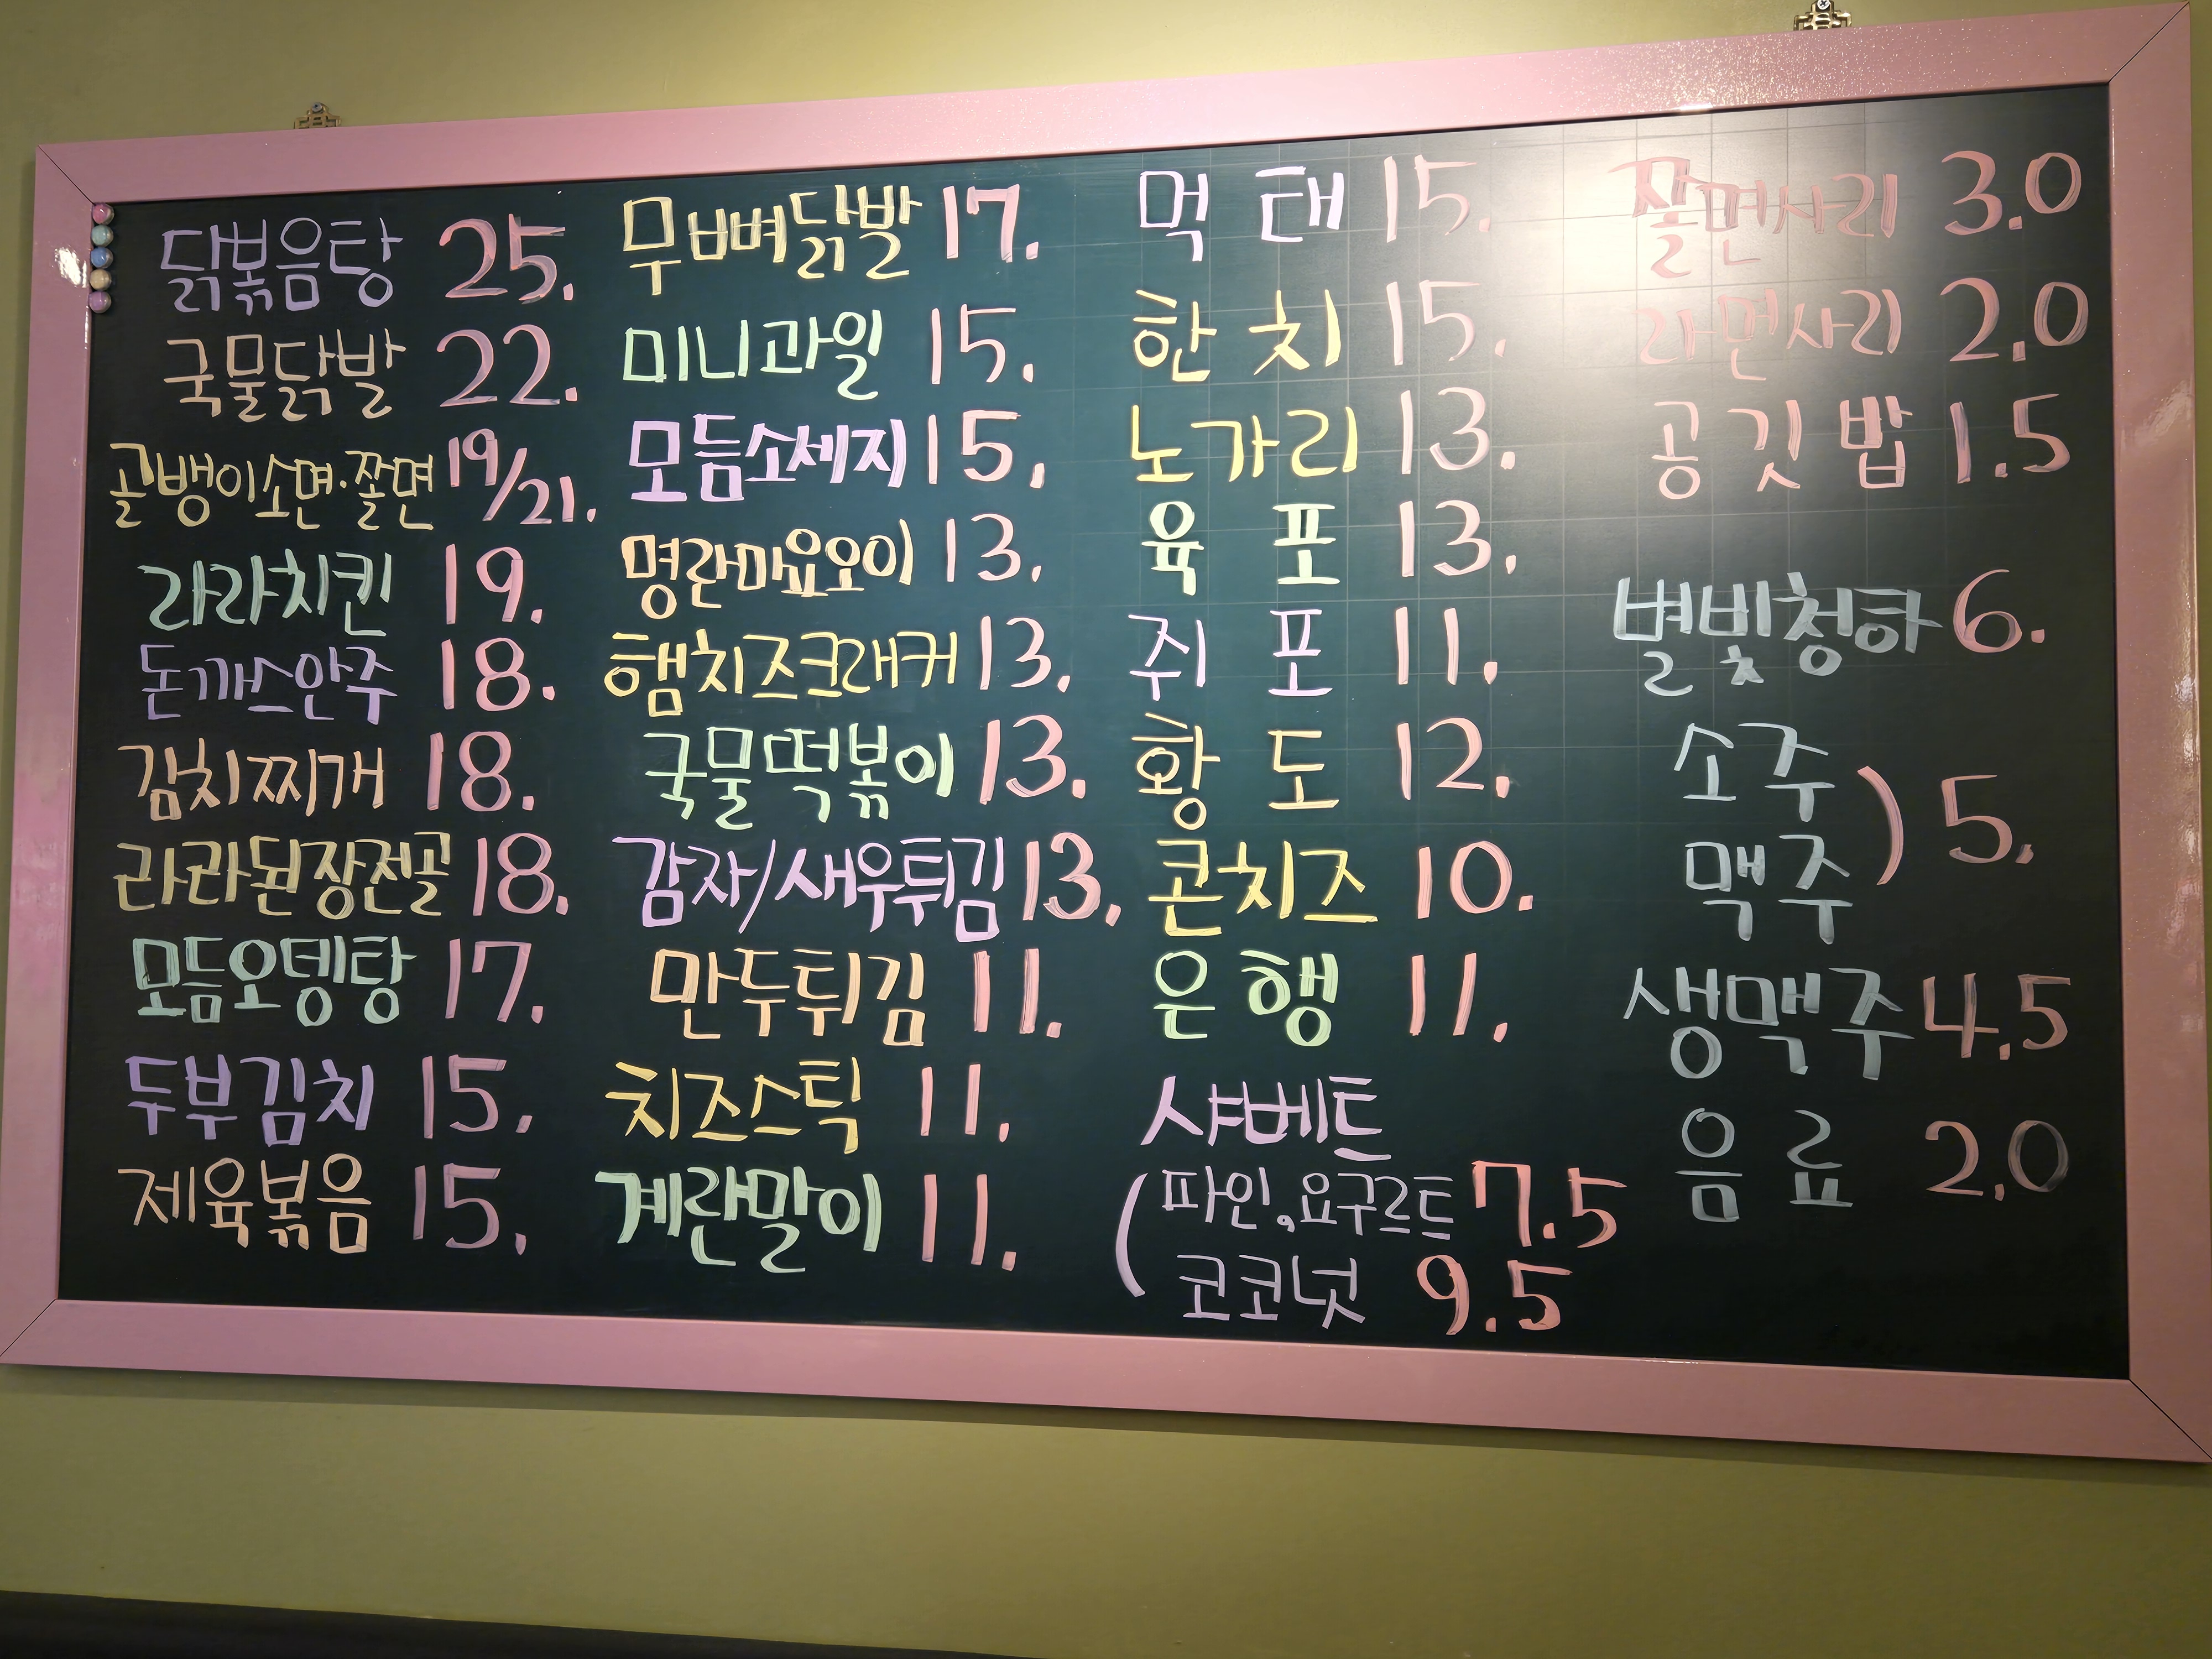 닭볶음탕 25.
국물닭발 22.
골뱅이소면·쫄면 19/21.
라라치킨 19.
돈까스안주 18.
김치찌개 18.
라라된장전골 18.
모듬오뎅탕 17.
두부김치 15.
제육볶음 15.
무뼈닭발 17.
미니과일 15.
모듬소세지 15.
명란마요오이 13.
햄치즈크래커 13.
국물떡볶이 13.
감자/새우튀김 13.
만두튀김 11.
치즈스틱 11.
계란말이 11.
먹태 15.
한치 15.
노가리 13.
육포 13.
쥐포 11.
황도 12.
콘치즈 10.
은행 11.
샤베트
(파인.요구르트 7.5
코코넛 9.5
쫄면사리 3.0
라면사리 2.0
공깃밥 1.5
별빛청하 6.
소주
맥주 ) 5.
생맥주 4.5
음료 2.0